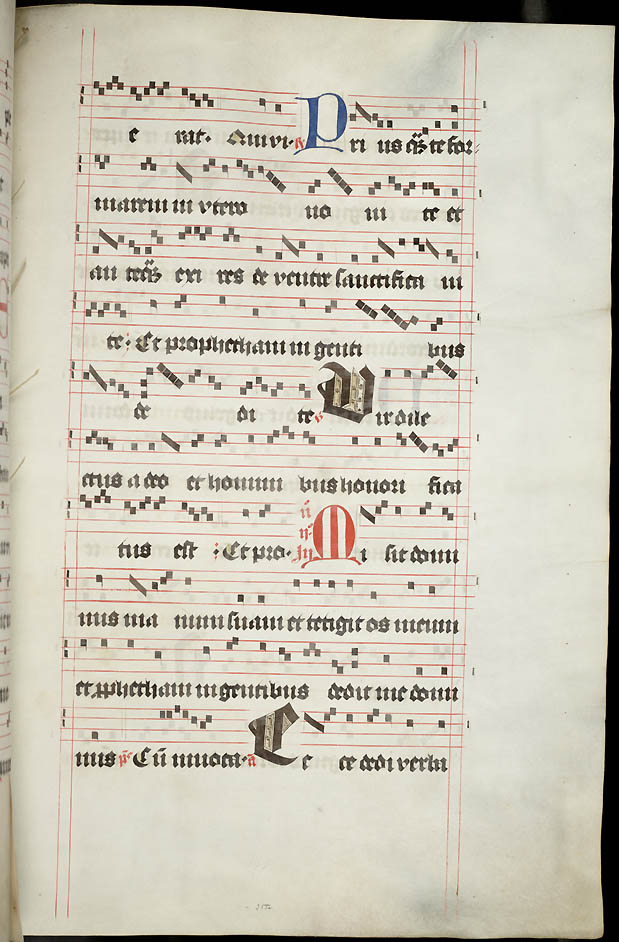 e rat· Quivi· R Pri us q̃ꝫ te for
marem in vtero no ui te et
an teq̃ꝫ exi res de ventre sanctifica ui
te: Et prophetham in genti bus
de di te v Vir dile
ctus a deo et homini bus honori fica
tus est : Et pro· In ij n̄ Mi sit domi
nus ma num suam et tetigit os meum
et ꝓphetham in gentibus dedit me domi
nus ps̄ Cū inuoca· a E c ce dedi verba